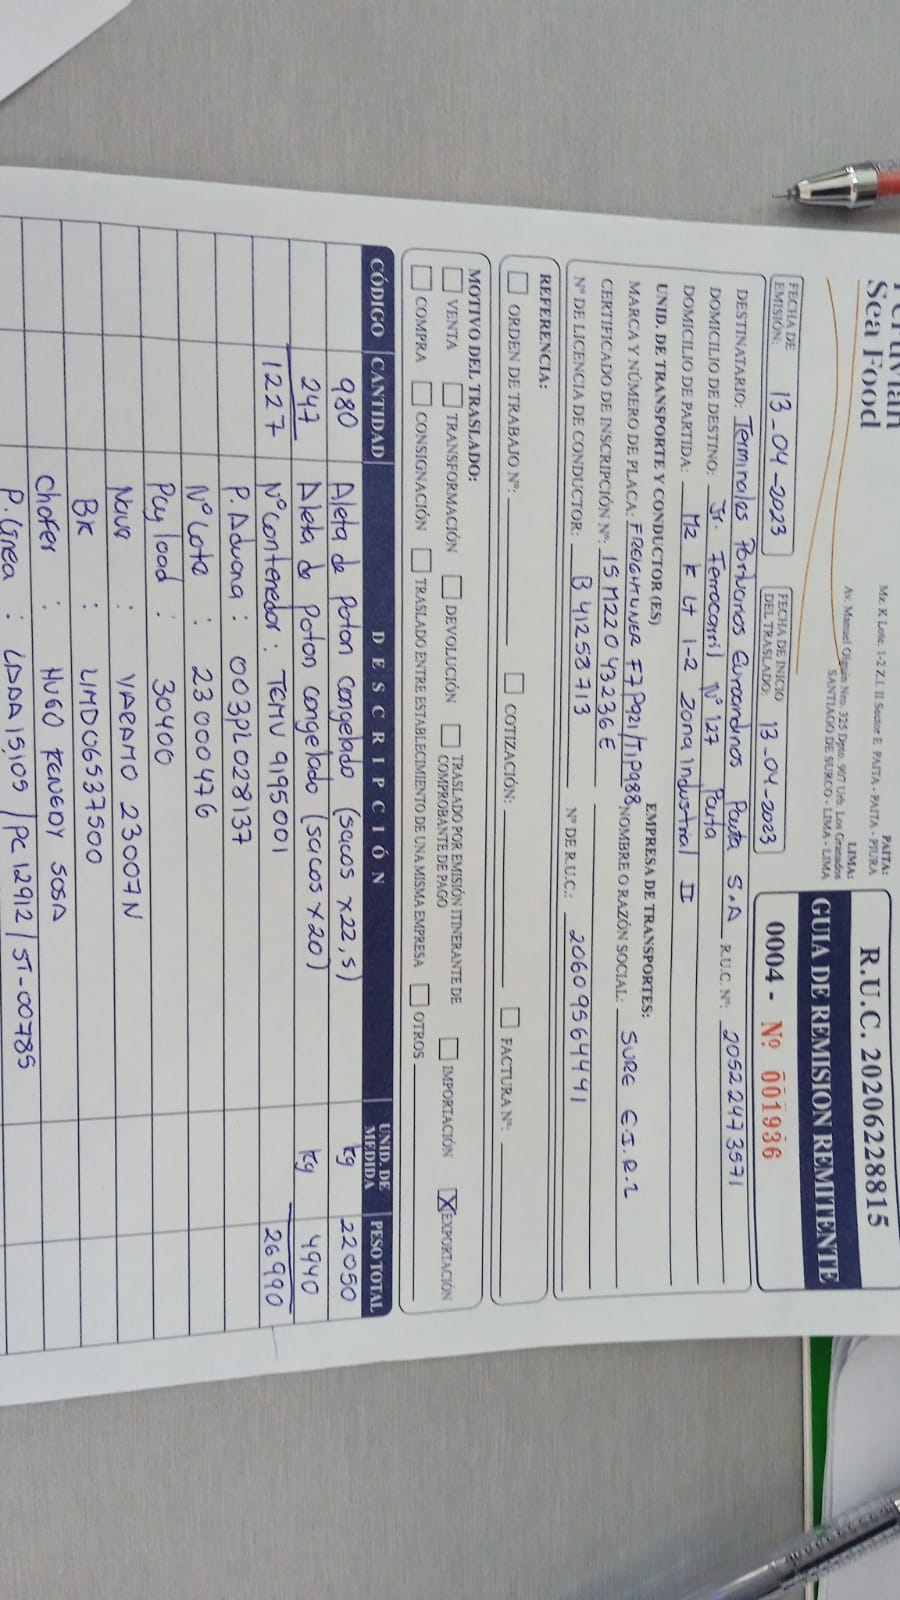 Peruvian
Sea Food
PAITA:
Mz. K Lote: 1-2 Z.I. II Sector E PAITA - PAITA - PIURA
LIMA:
Av. Manuel Olguin Nro. 325 Dpto. 907 Urb. Los Granados
SANTIAGO DE SURCO - LIMA - LIMA
R.U.C. 20206228815
GUIA DE REMISION REMITENTE
0004 - Nº 001936
FECHA DE EMISIÓN: 13-04-2023
FECHA DE INICIO DEL TRASLADO: 13-04-2023
DESTINATARIO: Terminales Portuarios Euroandinos Paita S.A R.U.C. Nº: 20522473571
DOMICILIO DE DESTINO: Jr. Ferrocarril Nº 127 Paita
DOMICILIO DE PARTIDA: Mz K Lt 1-2 Zona Industrial II
UNID. DE TRANSPORTE Y CONDUCTOR (ES) EMPRESA DE TRANSPORTES:
MARCA Y NÚMERO DE PLACA: FREIGHTLINER F7P921/T1P988 NOMBRE O RAZÓN SOCIAL: SURE E.I.R.L
CERTIFICADO DE INSCRIPCIÓN Nº: 15M22043236E
Nº DE LICENCIA DE CONDUCTOR: B41258713 Nº DE R.U.C.: 20609564441
REFERENCIA:
ORDEN DE TRABAJO Nº: COTIZACIÓN: FACTURA Nº:
MOTIVO DEL TRASLADO:
VENTA TRANSFORMACIÓN DEVOLUCIÓN TRASLADO POR EMISIÓN ITINERANTE DE COMPROBANTE DE PAGO IMPORTACIÓN X EXPORTACIÓN
COMPRA CONSIGNACIÓN TRASLADO ENTRE ESTABLECIMIENTO DE UNA MISMA EMPRESA OTROS
CÓDIGO CANTIDAD DESCRIPCIÓN UNID. DE MEDIDA PESO TOTAL
980 Aleta de Poton Congelado (sacos x22,5) kg 22050
247 Aleta de Poton Congelado (sacos x20) kg 4940
1227 Nº Contenedor: TEMU 9195001 26990
P. Aduana: 003PL028137
Nº Lote : 23000476
Pay load : 30400
Nave : VAERAMO 23007N
BK : LIMD06537500
Chofer : HUGO KENEDY SOSA
P. Linea : LDAA15,109/PC12912/ST-00785